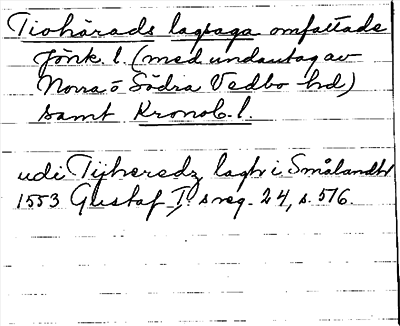 Tiohärads lagsaga omfattade
Jönk. l. (med undantag av
Norra o Södra Vedbo hd)
samt Kronob. l.
udi Tijheredz lagh i Smålandh
1553 Gustaf I:s reg. 24, s. 576.